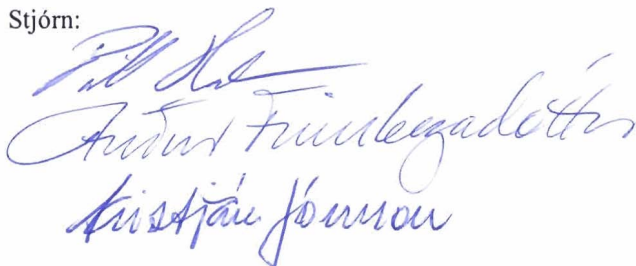 Stjórn:
Auður Finnbogadóttir
Kristján Jónsson